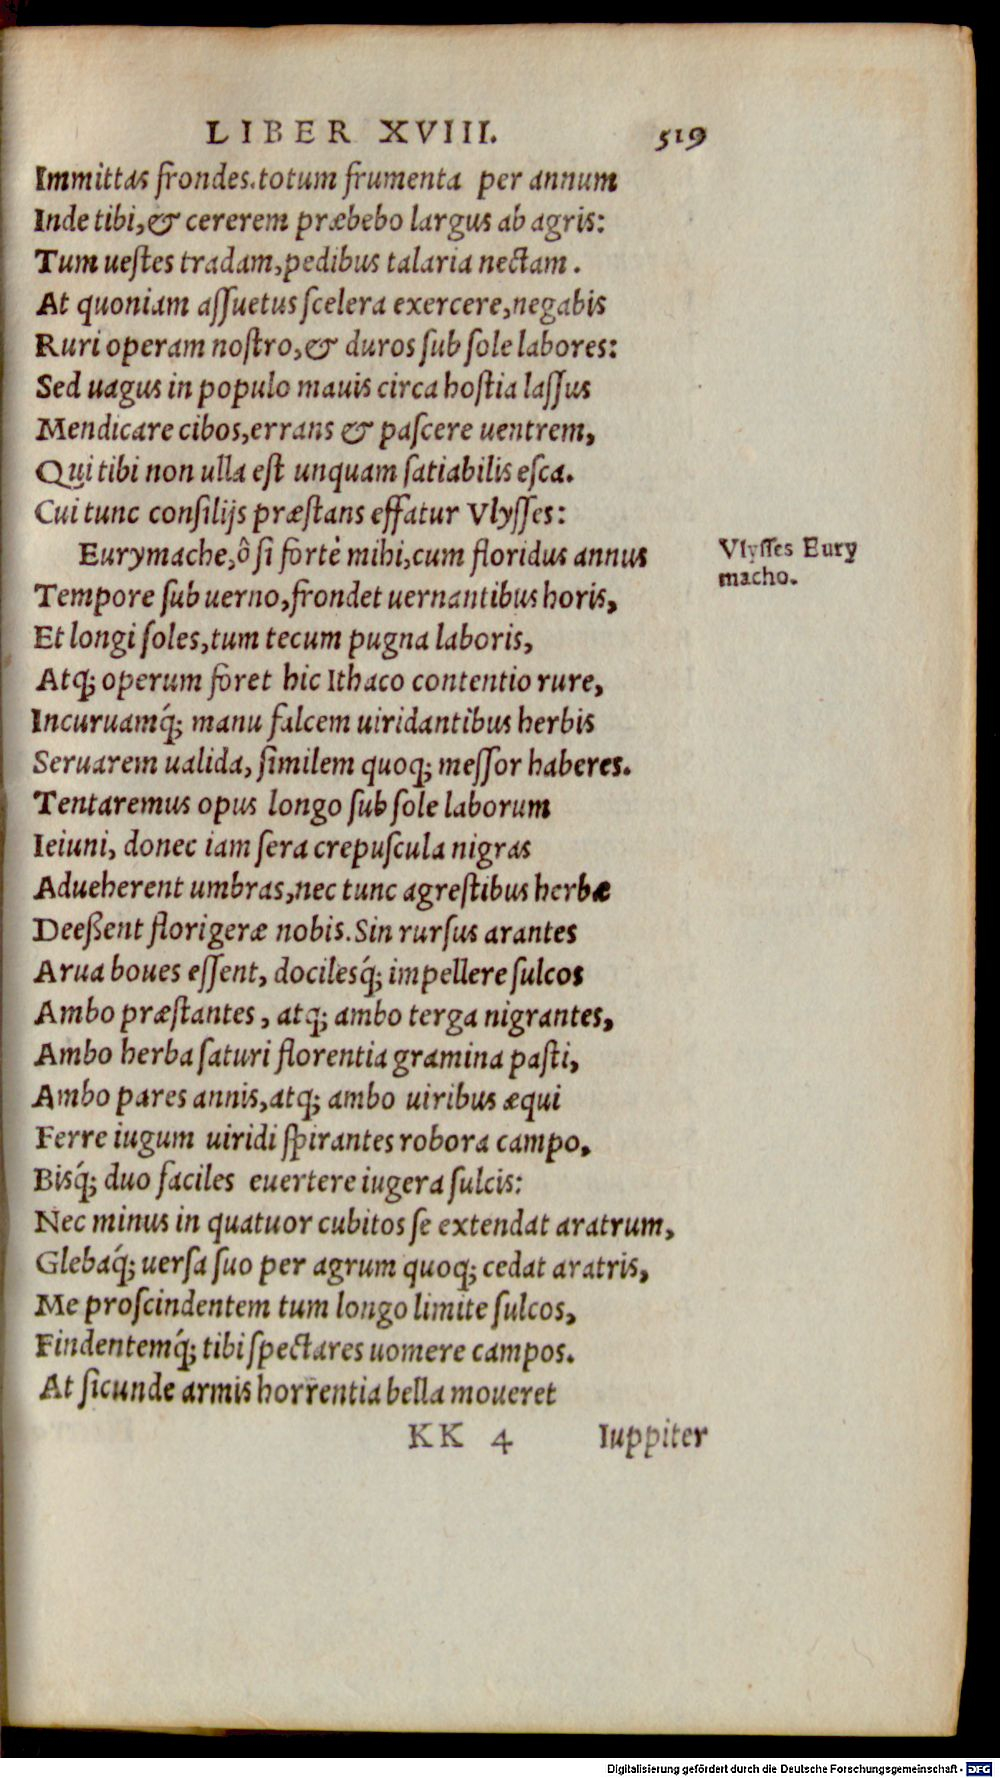 LIBER XVIII. 519
Immittas frondes.totum frumenta per annum
Inde tibi,& cererem præbebo largus ab agris:
Tum uestes tradam,pedibus talaria nectam.
At quoniam assuetus scelera exercere,negabis
Ruri operam nostro,& duros sub sole labores:
Sed uagus in populo mauis circa hostia lassus
Mendicare cibos,errans & pascere uentrem,
Qui tibi non ulla est unquam satiabilis esca.
Cui tunc consilijs præstans effatur Vlysses:
Eurymache,ô si fortè mihi,cum floridus annus
Vlysses Eury
macho.
Tempore sub uerno,frondet uernantibus horis,
Et longi soles,tum tecum pugna laboris,
Atq; operum foret hic Ithaco contentio rure,
Incuruamq́; manu falcem uiridantibus herbis
Seruarem ualida, similem quoq; messor haberes.
Tentaremus opus longo sub sole laborum
Ieiuni, donec iam sera crepuscula nigras
Adueherent umbras,nec tunc agrestibus herbæ
Deeßent florigeræ nobis.Sin rursus arantes
Arua boues essent, docilesq́; impellere sulcos
Ambo præstantes, atq; ambo terga nigrantes,
Ambo herba saturi florentia gramina pasti,
Ambo pares annis,atq; ambo uiribus æqui
Ferre iugum uiridi spirantes robora campo,
Bisq́; duo faciles euertere iugera sulcis:
Nec minus in quatuor cubitos se extendat aratrum,
Glebaq́; uersa suo per agrum quoq; cedat aratris,
Me proscindentem tum longo limite sulcos,
Findentemq́; tibi spectares uomere campos.
At sicunde armis horrentia bella moueret
KK 4 Iuppiter
Digitalisierung gefördert durch die Deutsche Forschungsgemeinschaft - DFG